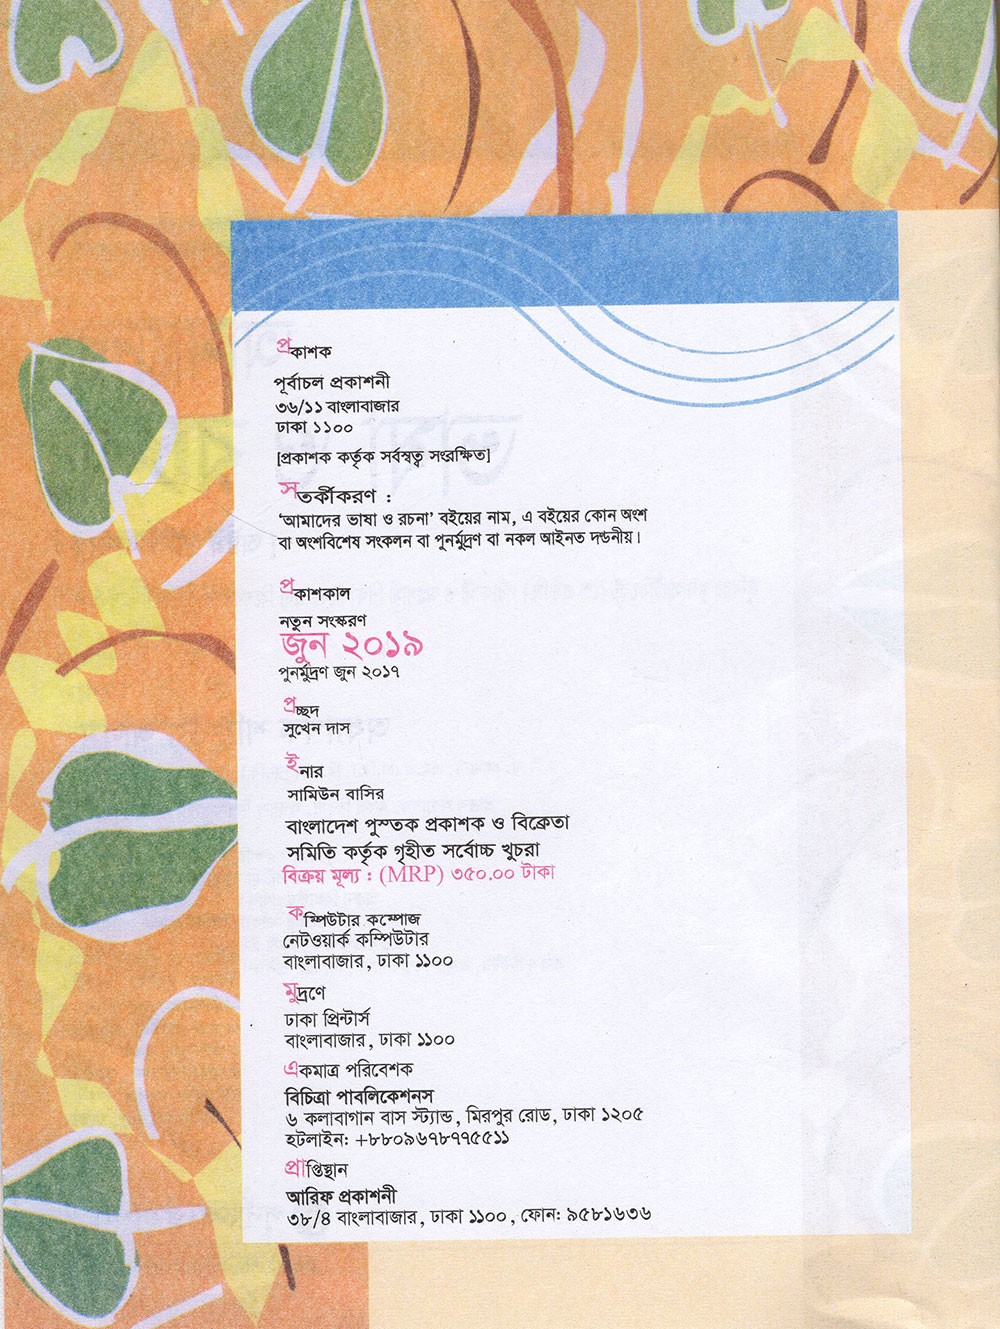 প্রকাশক
পূর্বাচল প্রকাশনী
৩৬/১১ বাংলাবাজার
ঢাকা ১১০০
[প্রকাশক কর্তৃক সর্বস্বত্ব সংরক্ষিত]
সতর্কীকরণ :
‘আমাদের ভাষা ও রচনা’ বইয়ের নাম, এ বইয়ের কোন অংশ
বা অংশবিশেষ সংকলন বা পুনর্মুদ্রণ বা নকল আইনত দন্ডনীয়।
প্রকাশকাল
নতুন সংস্করণ
জুন ২০১৯
পুনর্মুদ্রণ জুন ২০১৭
প্রচ্ছদ
সুখেন দাস
ইনার
সামিউন বাসির
বাংলাদেশ পুস্তক প্রকাশক ও বিক্রেতা
সমিতি কর্তৃক গৃহীত সর্বোচ্চ খুচরা
বিক্রয় মূল্য : (MRP) ৩৫০.০০ টাকা
কম্পিউটার কম্পোজ
নেটওয়ার্ক কম্পিউটার
বাংলাবাজার, ঢাকা ১১০০
মুদ্রণে
ঢাকা প্রিন্টার্স
বাংলাবাজার, ঢাকা ১১০০
একমাত্র পরিবেশক
বিচিত্রা পাবলিকেশনস
৬ কলাবাগান বাস স্ট্যান্ড, মিরপুর রোড, ঢাকা ১২০৫
হটলাইন: +৮৮০৯৬৭৮৭৭৫৫১১
প্রাপ্তিস্থান
আরিফ প্রকাশনী
৩৮/৪ বাংলাবাজার, ঢাকা ১১০০, ফোন: ৯৫৮১৬৩৬